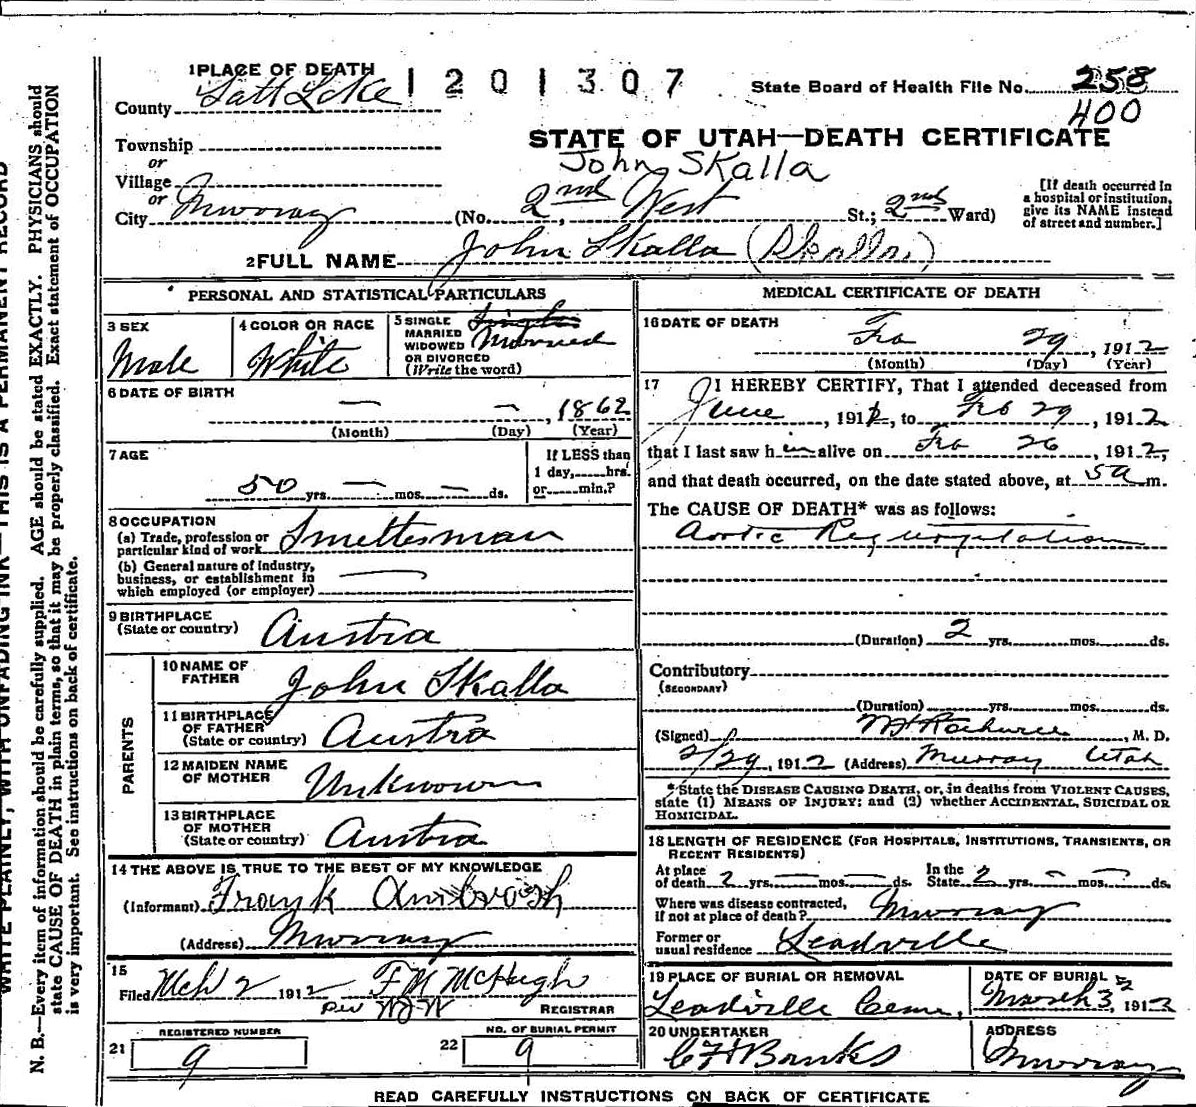 1 PLACE OF DEATH 1201307 State Board of Health File No. 258
County Salt Lake 400
Township STATE OF UTAH—DEATH CERTIFICATE
or John Skalla
Village
or
City Murray (No. 2nd, West St.; 2nd Ward)
[If death occurred in
a hospital or institution,
give its NAME instead
of street and number.]
2 FULL NAME John Skalla (Skalla)
PERSONAL AND STATISTICAL PARTICULARS
3 SEX
Male
4 COLOR OR RACE
White
5 SINGLE Single
MARRIED Married
WIDOWED
OR DIVORCED
(Write the word)
6 DATE OF BIRTH
— — , 1862
(Month) (Day) (Year)
7 AGE
50 yrs. — mos. — ds.
If LESS than
1 day, hrs.
or min.?
8 OCCUPATION
(a) Trade, profession or
particular kind of work Smelterman
(b) General nature of industry,
business, or establishment in
which employed (or employer) —
9 BIRTHPLACE
(State or country) Austra
PARENTS
10 NAME OF
FATHER John Skalla
11 BIRTHPLACE
OF FATHER
(State or country) Austra
12 MAIDEN NAME
OF MOTHER Unknown
13 BIRTHPLACE
OF MOTHER
(State or country) Austra
14 THE ABOVE IS TRUE TO THE BEST OF MY KNOWLEDGE
(Informant) Frank
(Address) Murray
15
Filed Mch 2 1912 F M McHugh
Per REGISTRAR
REGISTERED NUMBER
21 9
NO. OF BURIAL PERMIT
22 9
MEDICAL CERTIFICATE OF DEATH
16 DATE OF DEATH
Feb 29, 1912
(Month) (Day) (Year)
17 I HEREBY CERTIFY, That I attended deceased from
June, 191 , to Feb 29, 1912
that I last saw him alive on Feb 26, 1912,
and that death occurred, on the date stated above, at 5a m.
The CAUSE OF DEATH* was as follows:
Aortic Regurgitation
(Duration) 2 yrs. mos. ds.
Contributory
(SECONDARY)
(Duration) yrs. mos. ds.
(Signed) M. D.
2/29, 1912 (Address) Murray Utah
*State the DISEASE CAUSING DEATH, or, in deaths from VIOLENT CAUSES,
state (1) MEANS OF INJURY; and (2) whether ACCIDENTAL, SUICIDAL OR
HOMICIDAL.
18 LENGTH OF RESIDENCE (FOR HOSPITALS, INSTITUTIONS, TRANSIENTS, OR
RECENT RESIDENTS)
At place In the
of death 2 yrs. — mos. — ds. State 2 yrs. — mos. — ds.
Where was disease contracted,
if not at place of death? Murray
Former or
usual residence Leadville
19 PLACE OF BURIAL OR REMOVAL
Leadville Cem.
DATE OF BURIAL
March 3, 1912
20 UNDERTAKER
Banks
ADDRESS
Murray
READ CAREFULLY INSTRUCTIONS ON BACK OF CERTIFICATE
WRITE PLAINLY, WITH UNFADING INK—THIS IS A PERMANENT RECORD
N. B.—Every item of information should be carefully supplied. AGE should be stated EXACTLY. PHYSICIANS should
state CAUSE OF DEATH in plain terms, so that it may be properly classified. Exact statement of OCCUPATION
is very important. See instructions on back of certificate.